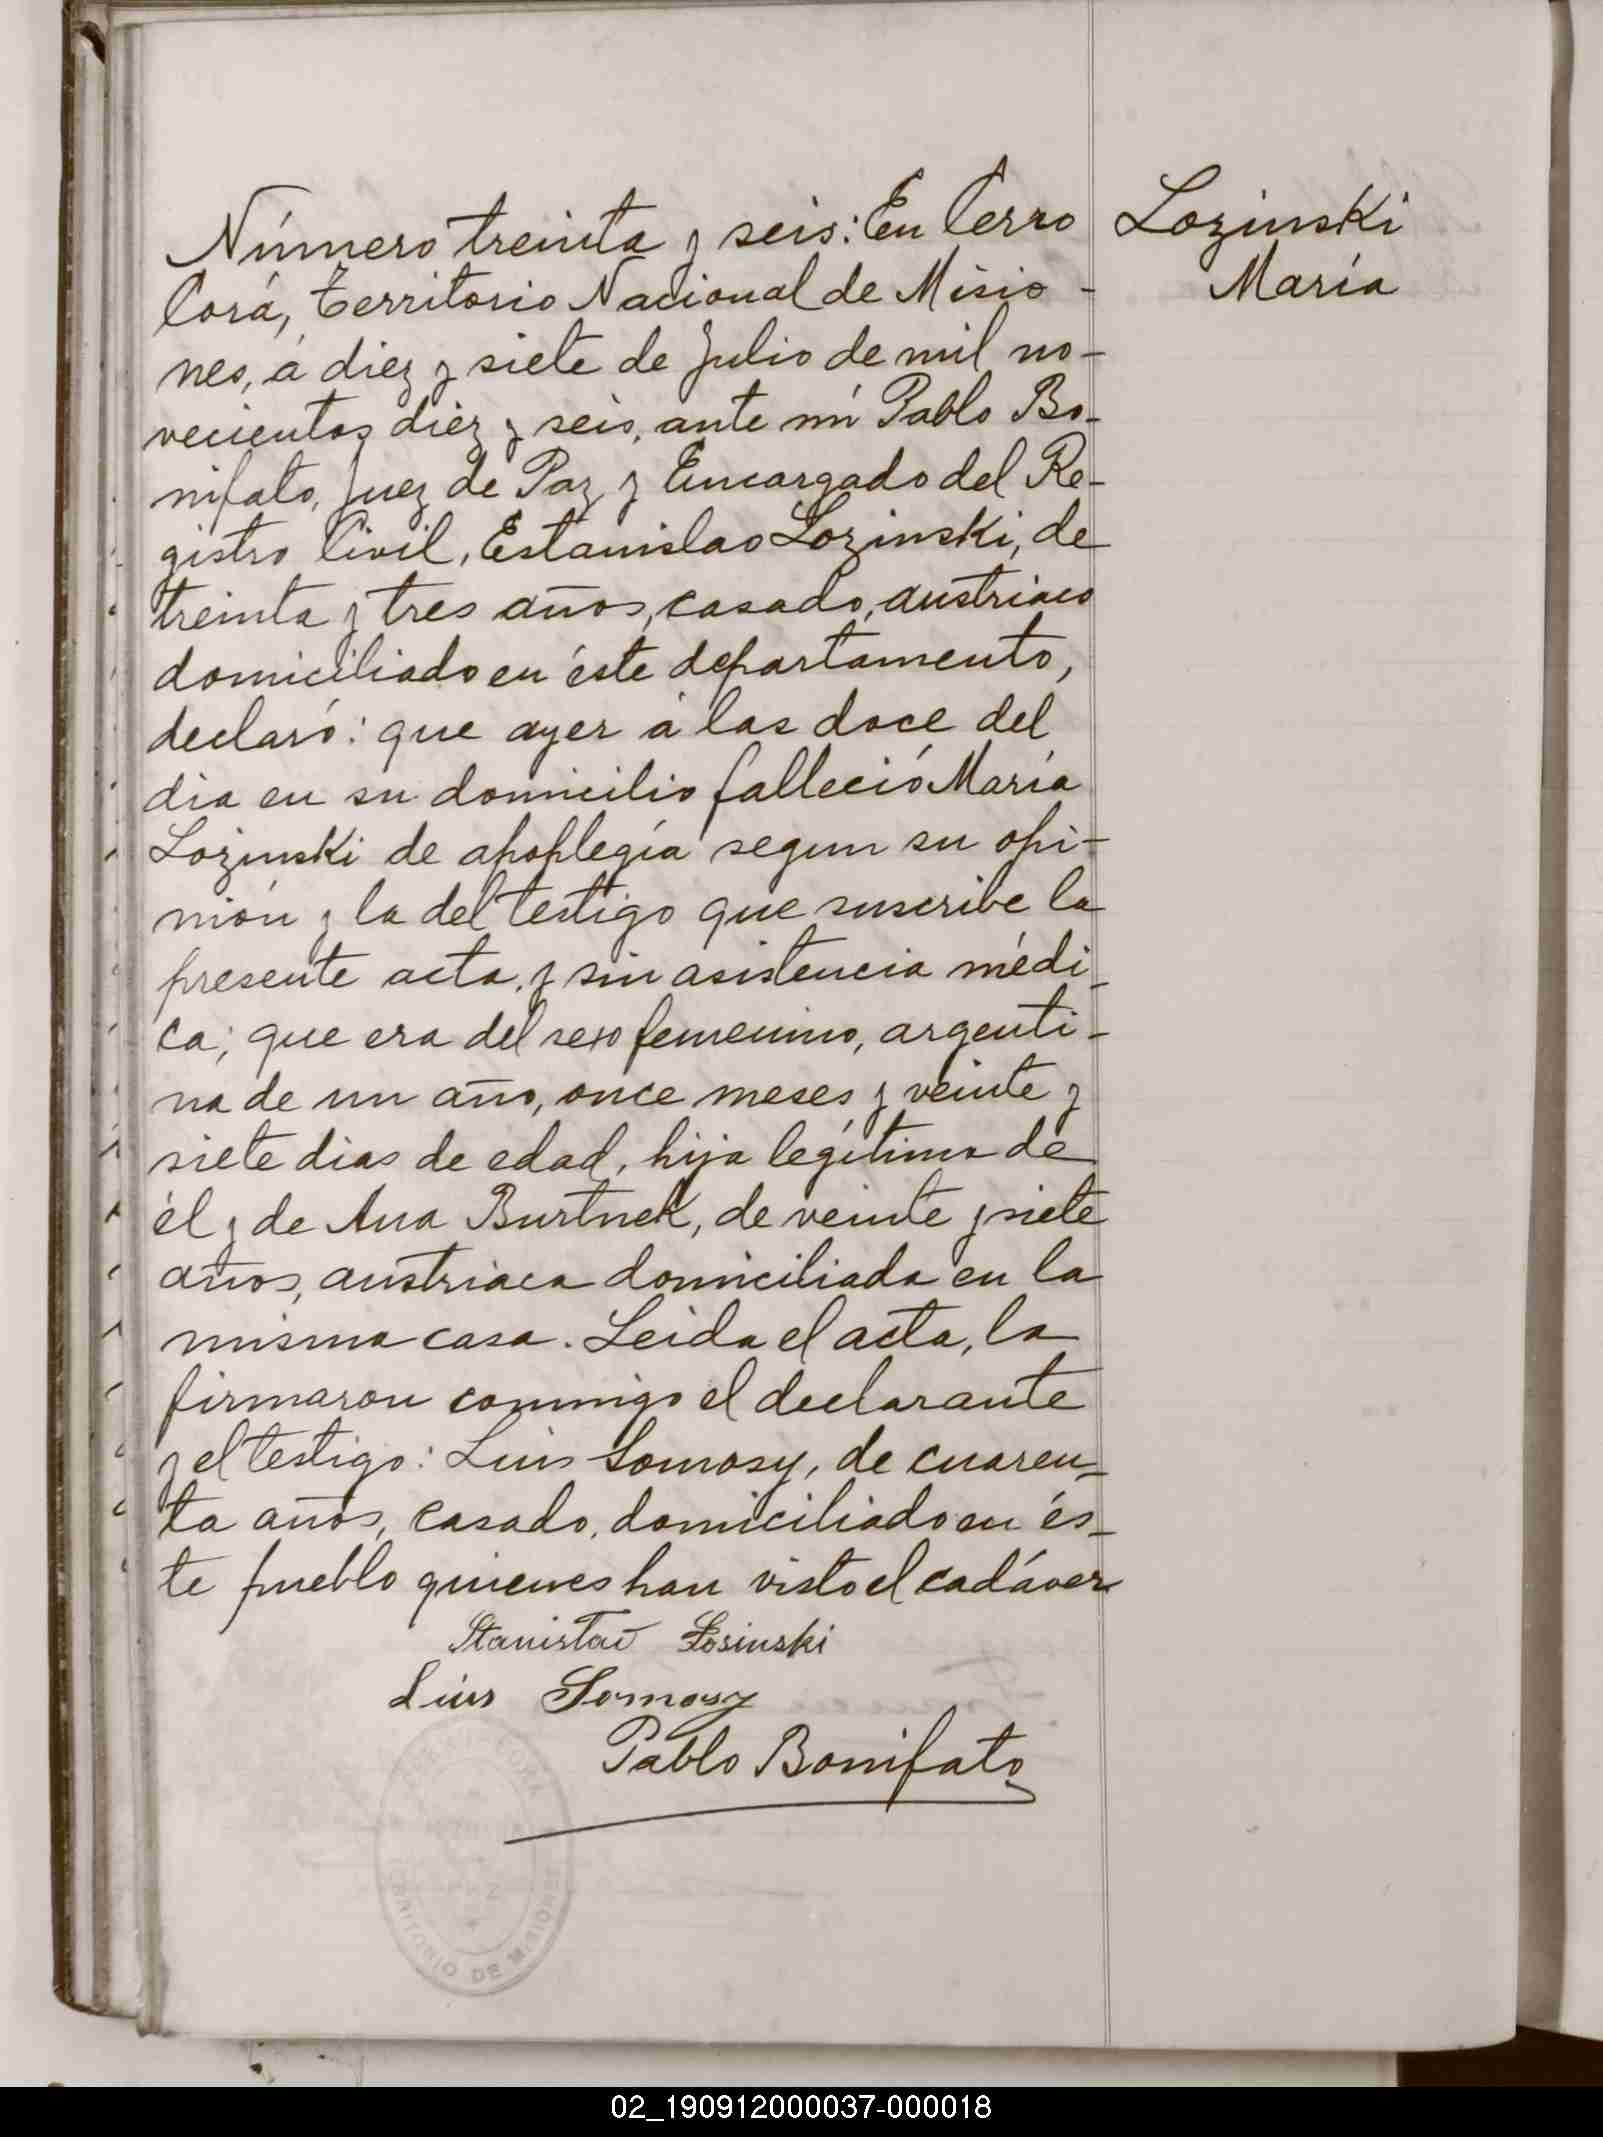 Número treinta y seis: En Cerro
Corá, Territorio Nacional de Misio-
nes, á diez y siete de Julio de mil no-
vecientos diez y seis, ante mi Pablo Bo-
nifato, Juez de Paz y Encargado del Re-
gistro Civil, Estanislao Lozinski, de
treinta y tres años, casado, austriaco
domiciliado en éste departamento,
declaró: que ayer á las doce del
dia en su domicilio falleció María
Lozinski de apoplegía segun su opi-
nión y la del testigo que suscribe la
presente acta, y sin asistencia médi-
ca; que era del sexo femenino, argenti-
na de un año, once meses y veinte y
siete dias de edad, hija legítima de
él y de Ana Burtnek, de veinte y siete
años, austriaca domiciliada en la
misma casa. Leida el acta, la
firmaron conmigo el declarante
y el testigo: Luis Somosy, de cuaren-
ta años, casado, domiciliado en és-
te pueblo quienes han visto el cadáver
Stanisław Łosinski
Luis Somosy
Pablo Bonifato
Lozinski
María
CERRO CORÁ
TERRITORIO DE MISIONES
02_190912000037-000018